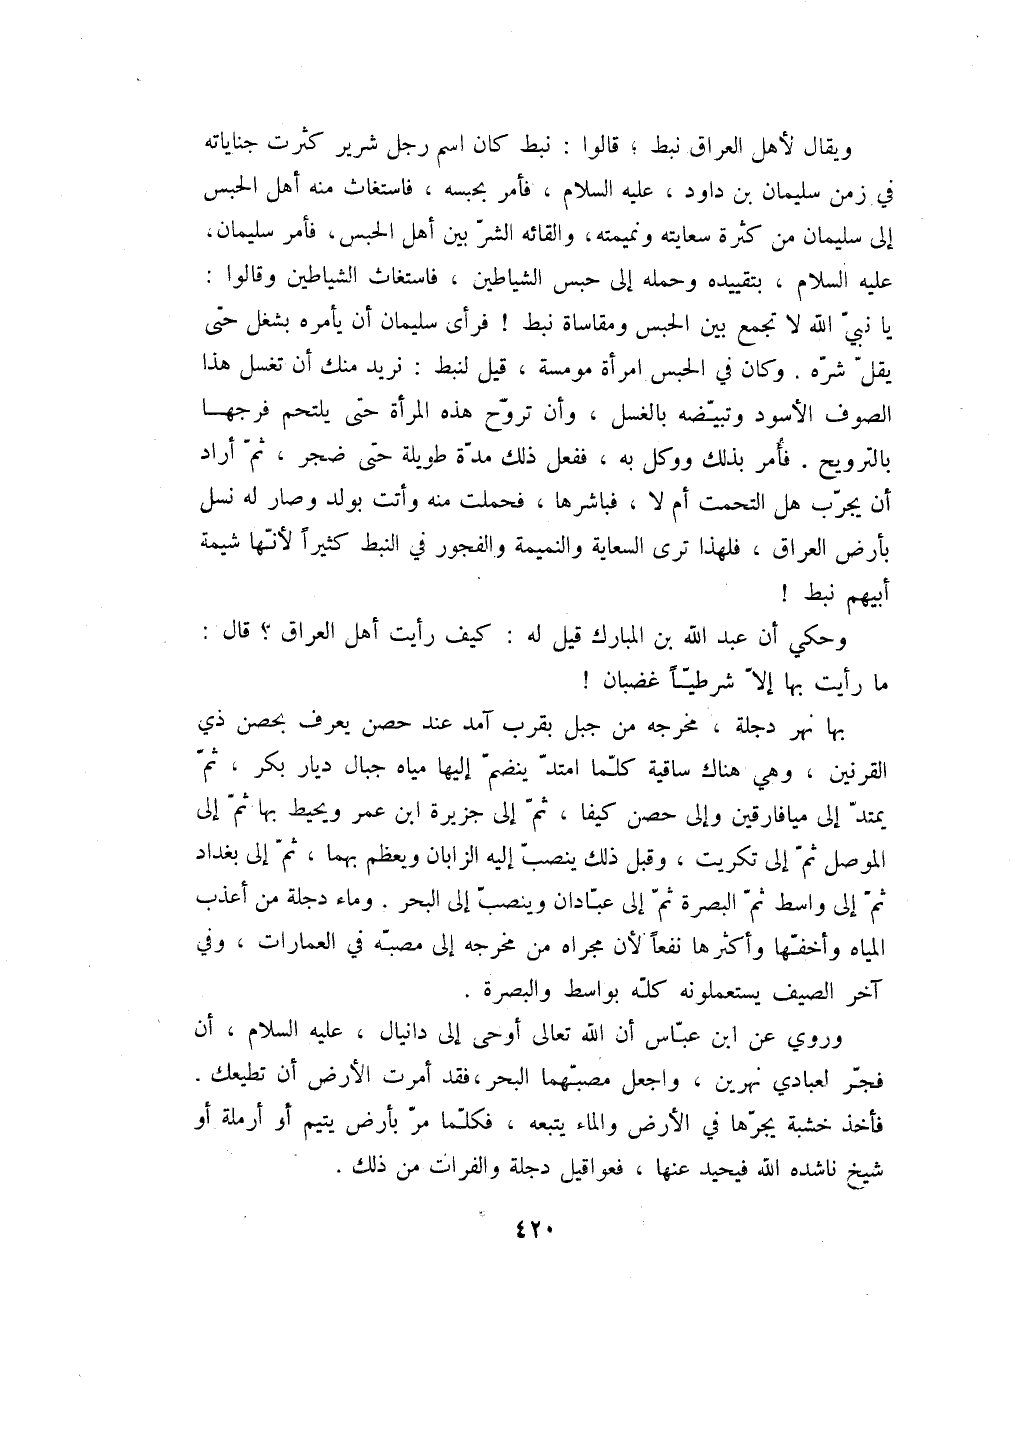 ويقال لأهل العراق نبط ؛ قالوا : نبط كان اسم رجل شرير كثرت جناياته
في زمن سليمان بن داود ، عليه السلام ، فأمر بحبسه ، فاستغاث منه أهل الحبس
إلى سليمان من كثرة سعايته ونميمته، والقائه الشرّ بين أهل الحبس، فأمر سليمان،
عليه السلام ، بتقييده وحمله إلى حبس الشياطين ، فاستغاث الشياطين وقالوا :
يا نبيّ الله لا تجمع بين الحبس ومقاساة نبط ! فرأى سليمان أن يأمره بشغل حتّى
يقلّ شرّه . وكان في الحبس امرأة مومسة ، قيل لنبط : نريد منك أن تغسل هذا
الصوف الأسود وتبيّضه بالغسل ، وأن تروّح هذه المرأة حتّى يلتحم فرجهـــا
بالترويح . فأُمر بذلك ووكل به ، ففعل ذلك مدّة طويلة حتّى ضجر ، ثمّ أراد
أن يجرّب هل التحمت أم لا ، فباشرها ، فحملت منه وأتت بولد وصار له نسل
بأرض العراق ، فلهذا ترى السعاية والنميمة والفجور في النبط كثيراً لأنّها شيمة
أبيهم نبط !
وحكي أن عبد الله بن المبارك قيل له : كيف رأيت أهل العراق ؟ قال :
ما رأيت بها إلاّ شرطيّـاً غضبان !
بها نهر دجلة ، مخرجه من جبل بقرب آمد عند حصن يعرف بحصن ذي
القرنين ، وهي هناك ساقية كلّما امتدّ ينضمّ إليها مياه جبال ديار بكر ، ثمّ
يمتدّ إلى ميافارقين وإلى حصن كيفا ، ثمّ إلى جزيرة ابن عمر ويحيط بها ثمّ إلى
الموصل ثمّ إلى تكريت ، وقبل ذلك ينصبّ إليه الزابان ويعظم بهما ، ثمّ إلى بغداد
ثمّ إلى واسط ثمّ البصرة ثمّ إلى عبّادان وينصبّ إلى البحر . وماء دجلة من أعذب
المياه وأخفّها وأكثرها نفعاً لأن مجراه من مخرجه إلى مصبّه في العمارات ، وفي
آخر الصيف يستعملونه كلّه بواسط والبصرة .
وروي عن ابن عبّاس أن الله تعالى أوحى إلى دانيال ، عليه السلام ، أن
فجّر لعبادي نهرين ، واجعل مصبّهما البحر ،فقد أمرت الأرض أن تطيعك .
فأخذ خشبة يجرّها في الأرض والماء يتبعه ، فكلّما مرّ بأرض يتيم أو أرملة أو
شيخ ناشده الله فيحيد عنها ، فعواقيل دجلة والفرات من ذلك .
٤٢٠